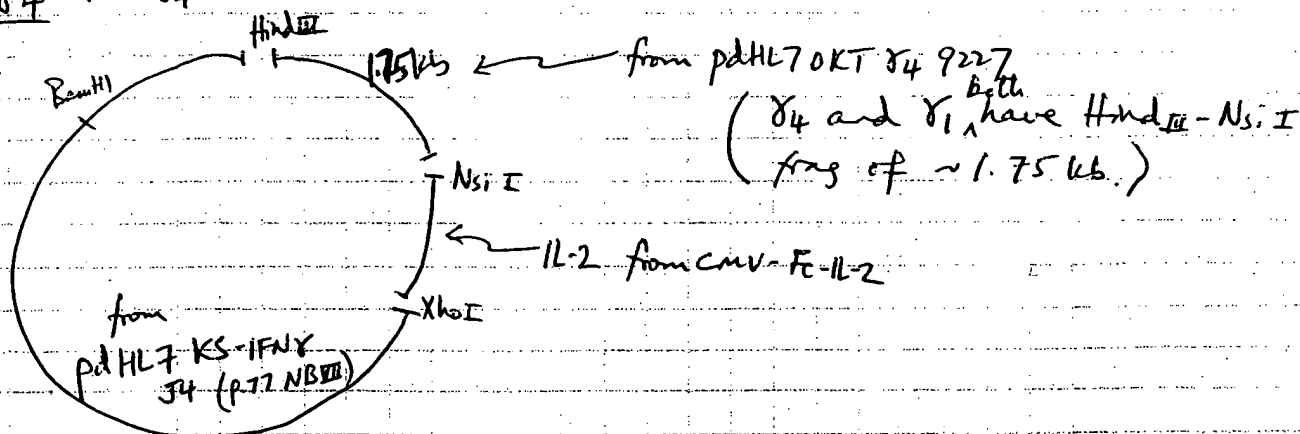 Hind III
1.75 kb
from pdHL7 OKT γ4 9227
(γ4 and γ1 both have Hind III - Nsi I
frag of ~1.75 kb.)
BamHI
Nsi I
IL-2 from CMV-Fc-IL-2
XhoI
from
pdHL7 KS-IFNγ
J4 (p.77 NB VII)